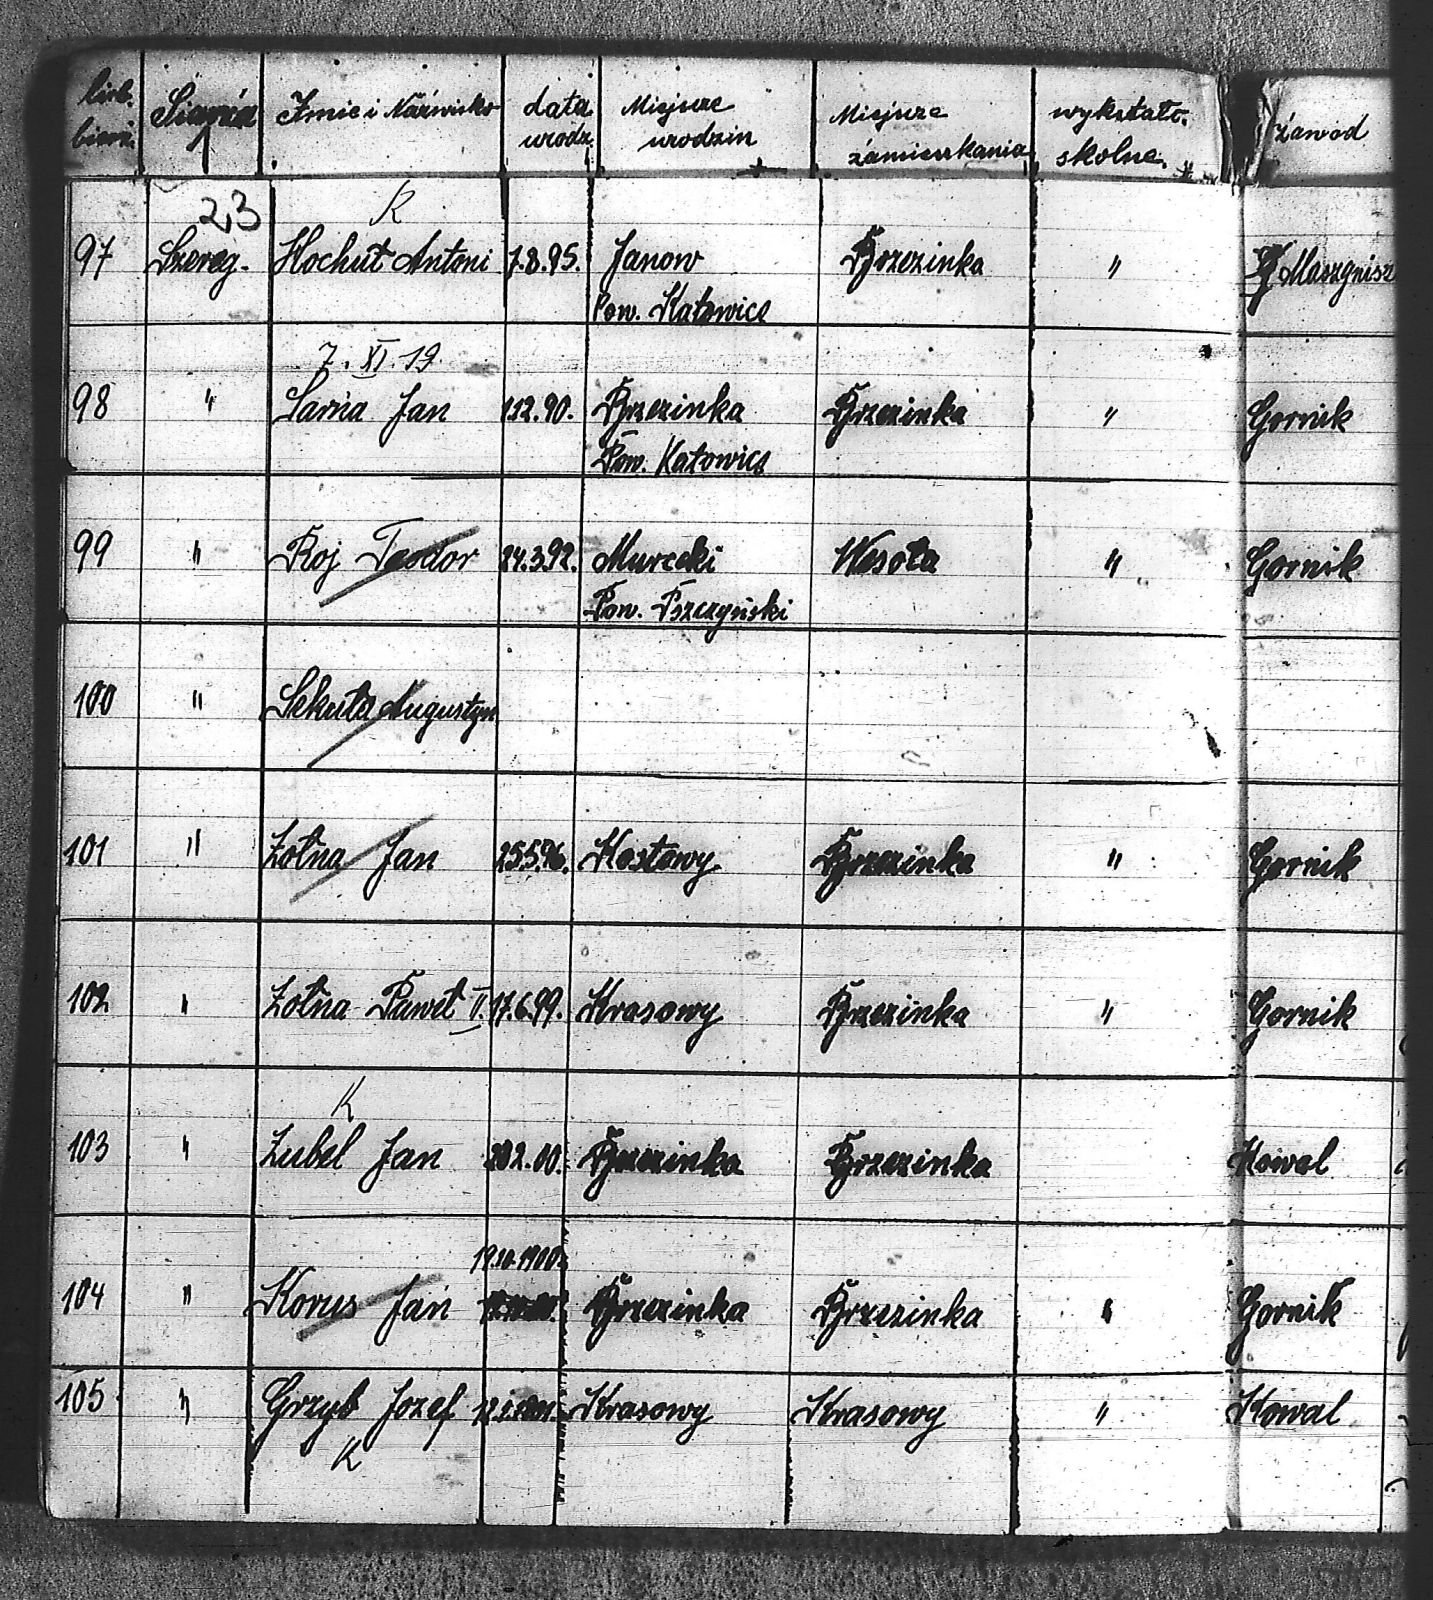 licb. bieżą. Szarża Imie i Nazwisko data urodz. Miejsce urodzin Miejsce zamieszkania wykształc. skolne. zawod
23 K
97 Szereg. Hochut Antoni 7.8.95. Janow Brzezinka " Maszynisz
Pow. Katowice
7. XI. 19.
98 " Sarna Jan 1.12.90. Brzezinka Brzezinka " Gornik
Pow. Katowice
99 " Roj Teodor 24.3.92. Murcki Wesoła " Gornik
Pow. Pszczyński
100 " Sekuta Augustyn
101 " Żołna Jan 25.5.96. Kostowy Brzezinka " Gornik
102 " Żołna Paweł II. 17.6.99. Krasowy Brzezinka " Gornik
K
103 " Zubel Jan Brzezinka Brzezinka Kowal
19.10.1900
104 " Korus Jan Brzezinka Brzezinka " Gornik
105 " Grzyb Jozef Krasowy Krasowy " Kowal
K